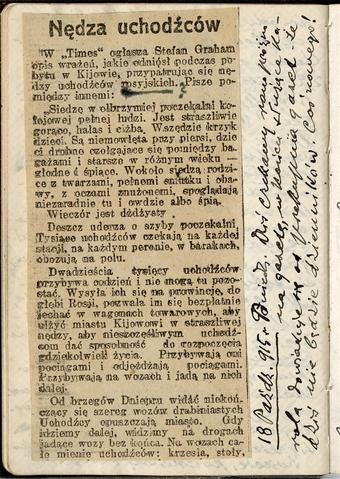 Nędza uchodźców
W „Times" ogłasza Stefan Graham
opis wrażeń, jakie odniósł podczas po-
bytu w Kijowie, przypatrując się nę-
dzy uchodźców rosyjskich. Pisze po-
między innemi:
„Siedzę w olbrzymiej poczekalni ko-
lejowej pełnej ludzi. Jest straszliwie
gorąco, hałas i ciżba. Wszędzie krzyk
dzieci. Są niemowlęta przy piersi, dzie-
ci drobne czołgające się pomiędzy ba-
gażami i starsze w różnym wieku —
głodne d śpiące. Wokoło siedzą rodzi-
ce z twarzami, pełnemi smutku i oba-
wy, z oczami znużonemi, spoglądają
niezaradnie tu i owdzie albo śpią.
Wieczór jest dżdżysty.
Deszcz uderza o szyby poczekalni.
Tysiące uchodźców czekają na każdej
stacji, na każdym perenie, w barakach,
obozują na polu.
Dwadzieścia tysięcy uchodźców
przybywa codzień i nie mogą tu pozo-
stać. Wysyła ich się na prowincję, do
głębi Rosji, pozwala im się bezpłatnie
jechać w wagonach towarowych, aby
ulżyć miastu Kijowowi w straszliwej
nędzy, aby nieszczęśliwym uchodź-
com dać sposobność do rozpoczęcia
gdziekolwiek życia. Przybywają oni
pociągami i odjeżdżają pociągami.
Przybywają na wozach i jadą na nich
dalej.
Od brzegów Dniepru widać niekoń-
czący się szereg wozów drabiniastych
Uchodźcy opuszczają miasto. Gdy
idziemy dalej, widzimy na drogach
jadące wozy bez końca. Na wozach ca-
łe mienie uchodźców: krzesła, stoły,
18 Paźdz. 915 r.
dziś nie będzie dzienników. Coś nowego!